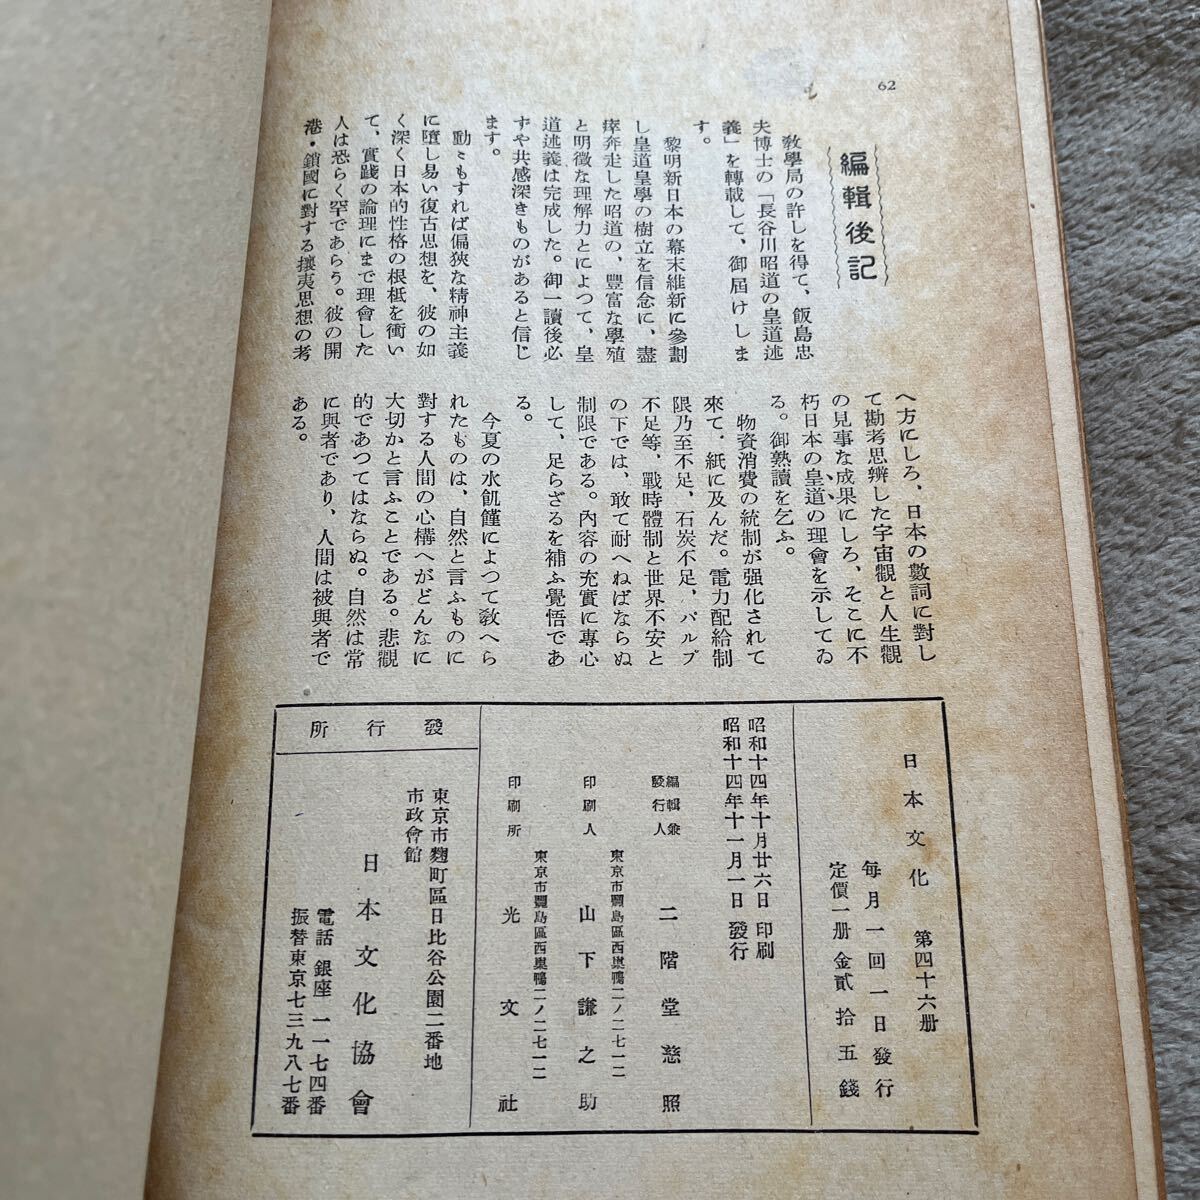 62
編輯後記
教學局の許しを得て、飯島忠
夫博士の「長谷川昭道の皇道述
義」を轉載して、御屆けしま
す。
黎明新日本の幕末維新に參劃
し皇道皇學の樹立を信念に、盡
瘁奔走した昭道の、豐富な學殖
と明徹な理解力とによつて、皇
道述義は完成した。御一讀後必
ずや共感深きものがあると信じ
ます。
動〻もすれば偏狹な精神主義
に墮し易い復古思想を、彼の如
く深く日本的性格の根柢を衝い
て、實踐の論理にまで理會した
人は恐らく罕であらう。彼の開
港・鎖國に對する攘夷思想の考
へ方にしろ、日本の數詞に對し
て勘考思辨した宇宙觀と人生觀
の見事な成果にしろ、そこに不
朽日本の皇道の理會を示してゐ
る。御熟讀を乞ふ。
物資消費の統制が强化されて
來て、紙に及んだ。電力配給制
限乃至不足，石炭不足，パルプ
不足等，戰時體制と世界不安と
の下では、敢て耐へねばならぬ
制限である。內容の充實に專心
して、足らざるを補ふ覺悟であ
る。
今夏の水飢饉によつて敎へら
れたものは、自然と言ふものに
對する人間の心構へがどんなに
大切かと言ふことである。悲觀
的であつてはならぬ。自然は常
に與者であり，人間は被與者で
ある。
日本文化 第四十六册
每月一回一日發行
定價一册金貳拾五錢
昭和十四年十月廿六日印刷
昭和十四年十一月一日發行
編輯兼
發行人 二階堂慈照
東京市豐島區西巢鴨二ノ二七一二
印刷人 山下謙之助
東京市豐島區西巢鴨二ノ二七一二
印刷所 光文社
發行所
東京市麴町區日比谷公園二番地
市政會館
日本文化協會
電話銀座一一七四番
振替東京七三九八七番